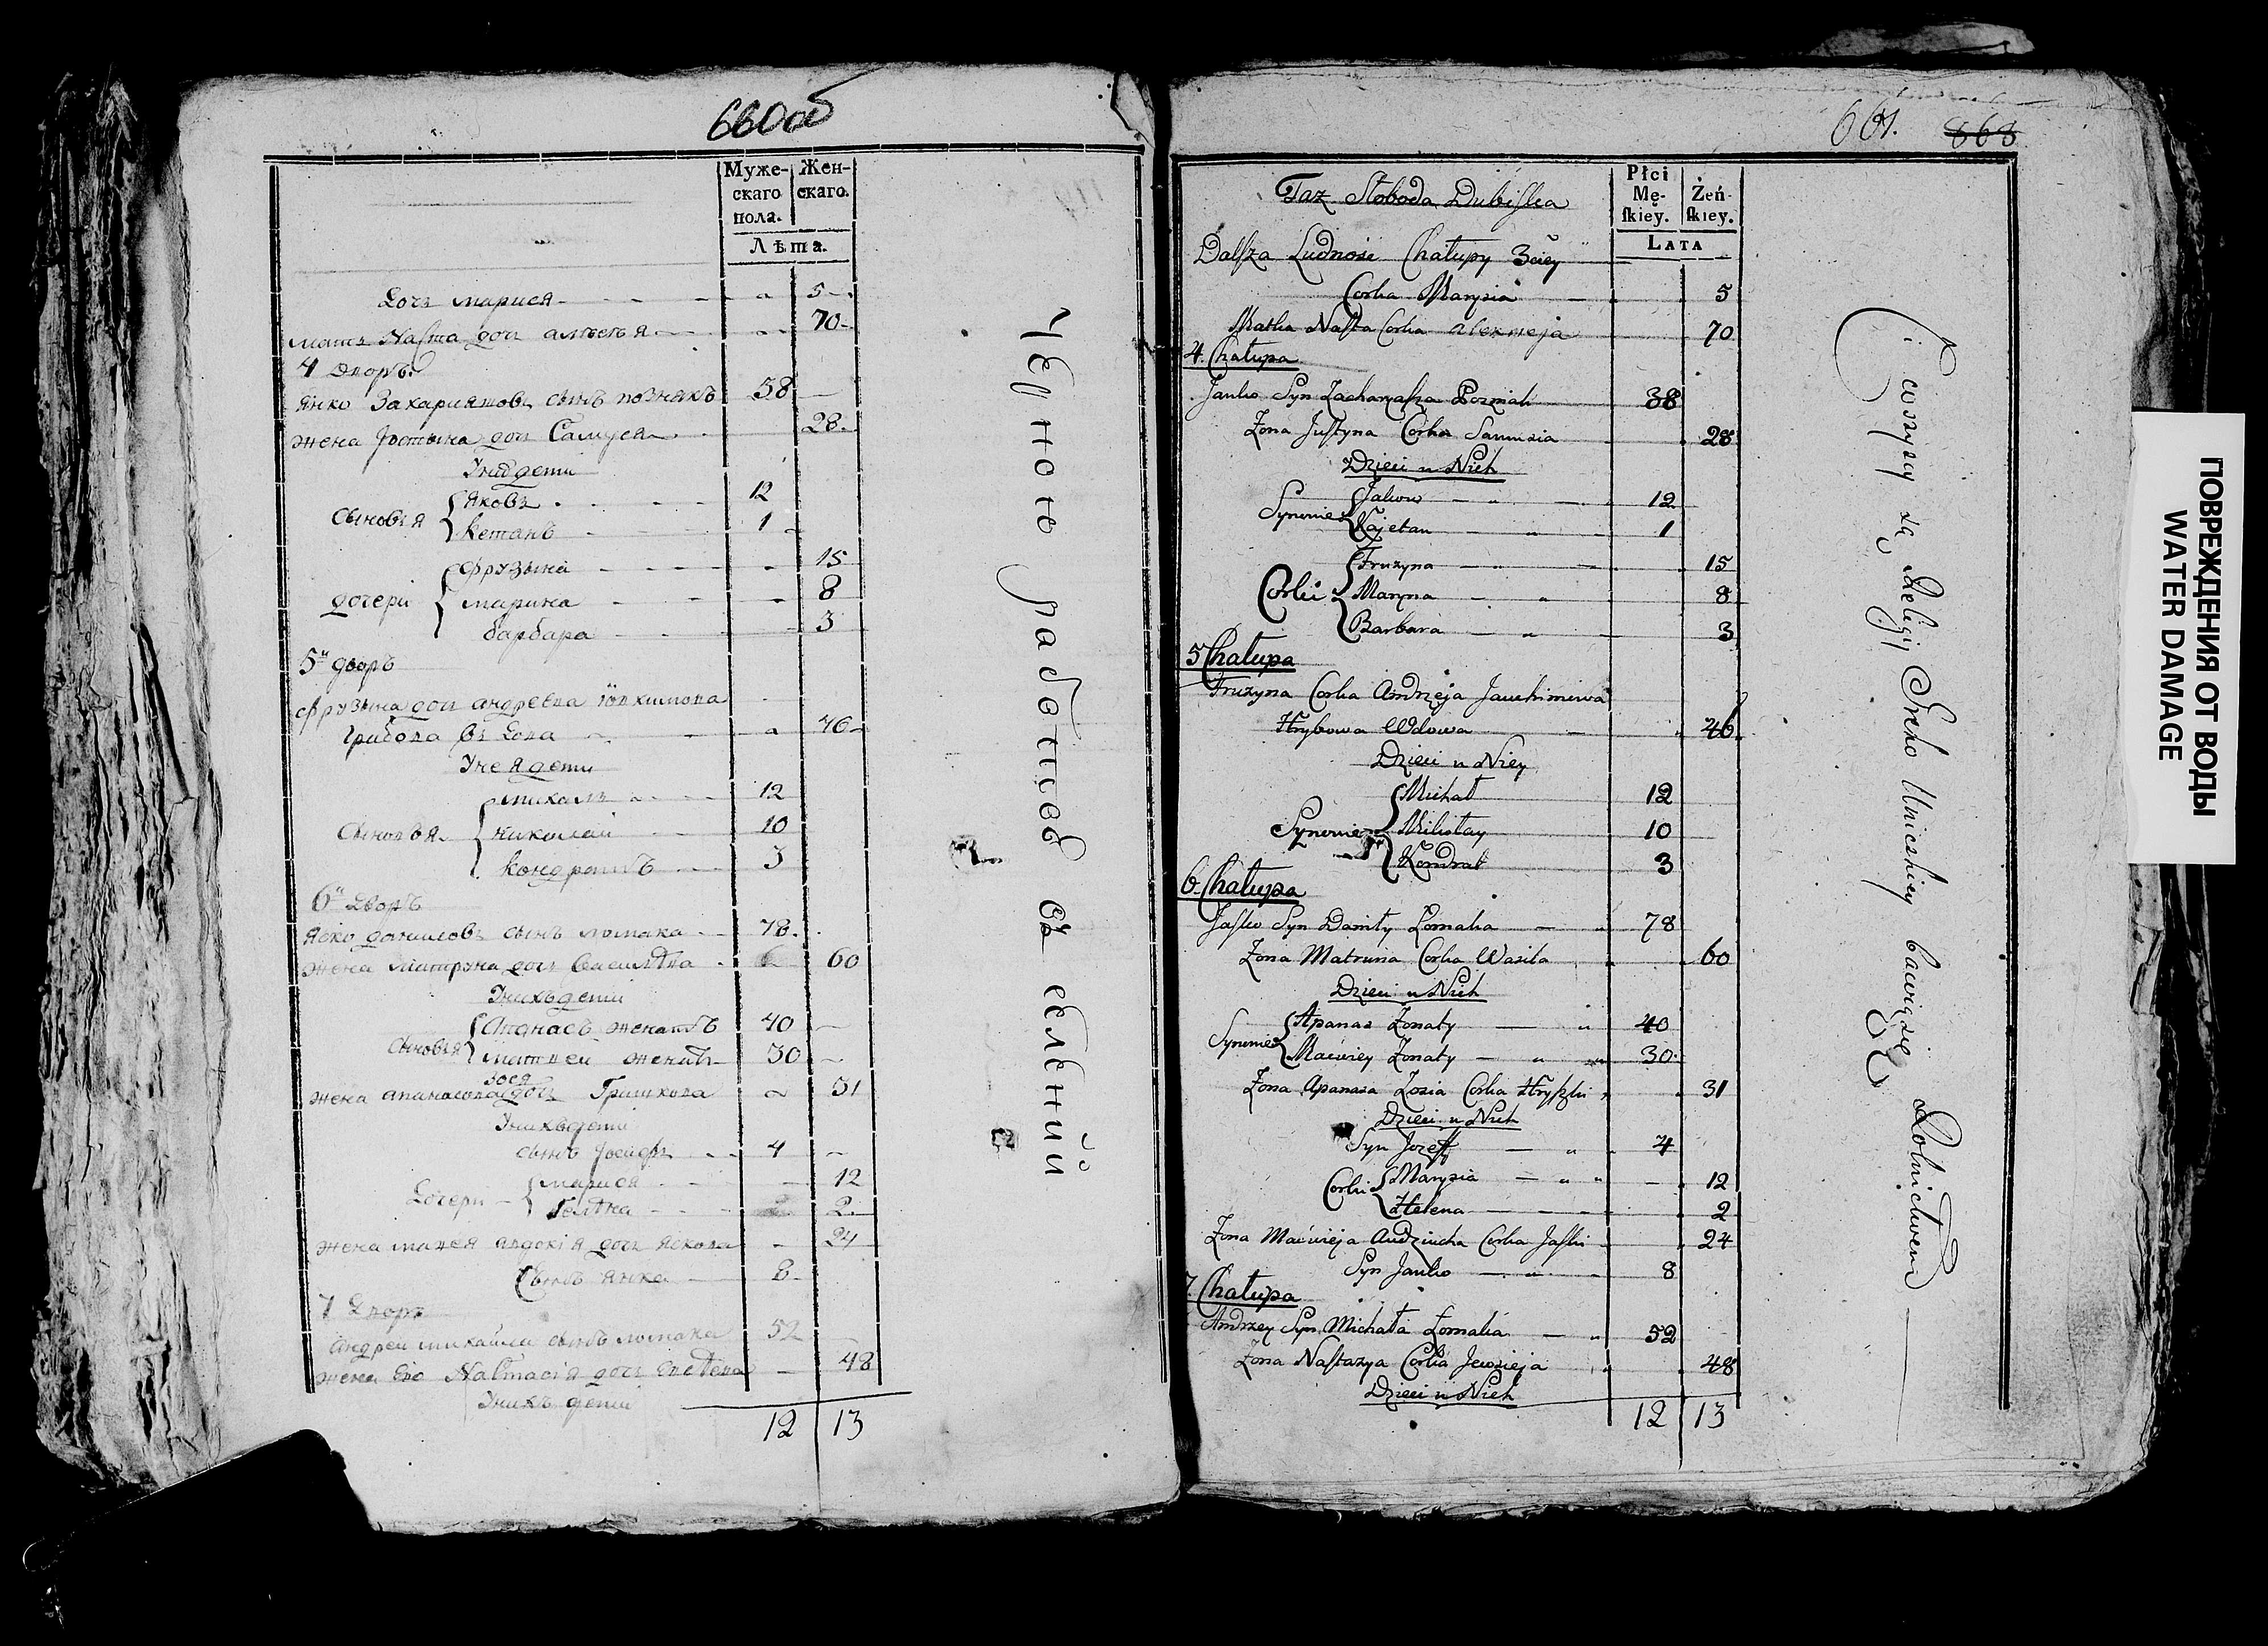 660об
Муже-
скаго
пола.
Жен-
скаго.
Лѣта.
Дочь марися 5
мать Nаста доч алексѣя 70
4 дворъ
Янко Захариятовъ сынъ познякъ 38
жена Юстына доч Самуся 28
У них дети
сыновья Яковъ 12
Кетанъ 1
дочери фрузына 15
марина 8
барбара 3
5й дворъ
фрузына доч андреева
Грибова вдова 46
У нея дети
сыновья михалъ 12
николай 10
кондратъ 3
6й дворъ
Яско даниловъ сынъ ломака 78
жена матруна доч Василѣва 60
У нихъ дети
сыновья Апанасъ женатъ 40
матвей женатъ 30
жена апанасова зося доч Гришкова 31
У нихъ дети
сынъ Iосифъ 4
Дочери марися 12
Гелѣна 2
жена мацея авдокiя доч яскова 24
Сынъ янка 8
7 Дворъ
андрей михайла сынъ ломака 52
жена его Nастасiя доч 48
У нихъ дети
12 13
Черною работою въ
661.
868
Płci
Mę-
ſkiey.
Żeń-
ſkiey.
LATA
Taż Słoboda Dubiſka
Dalſza Ludność Chałupy 3ciey
Corka Marysia 5
Matka Naſta Corka alexieja 70
4. Chałupa
Janko Syn Zacharyaſza Pozniak 38
Zona Juſtyna Corka Samusia 28
Dzieci u Nich
Synowie Jakow 12
Kajetan 1
Corki Fruzyna 15
Maryna 8
Barbara 3
5 Chałupa
Fruzyna Corka Andrzeja Jauchimowa
Hrybowa Wdowa 46
Dzieci u Niey
Synowie Michał 12
Mikołay 10
Kondrat 3
6. Chałupa
Jaſko Syn Daniły Łomaka 78
Zona Matruna Corka Wasila 60
Dzieci u Nich
Synowie Apanas Zonaty 40
Maciey Zonaty 30
Zona Apanasa Zosia Corka Hryſzki 31
Dzieci u Nich
Syn Jozeff 4
Corki Marysia 12
Helena 2
Zona Macieja Audziucha Corka Jaſki 24
Syn Janko 8
7. Chałupa
Andrzey Syn Michała Łomaka 52
Zona Naſtazya Corka 48
Dzieci u Nich
12 13
i wszyscy są Religij Greko Unickiey bawią się Rolnictwem
ПОВРЕЖДЕНИЯ ОТ ВОДЫ
WATER DAMAGE